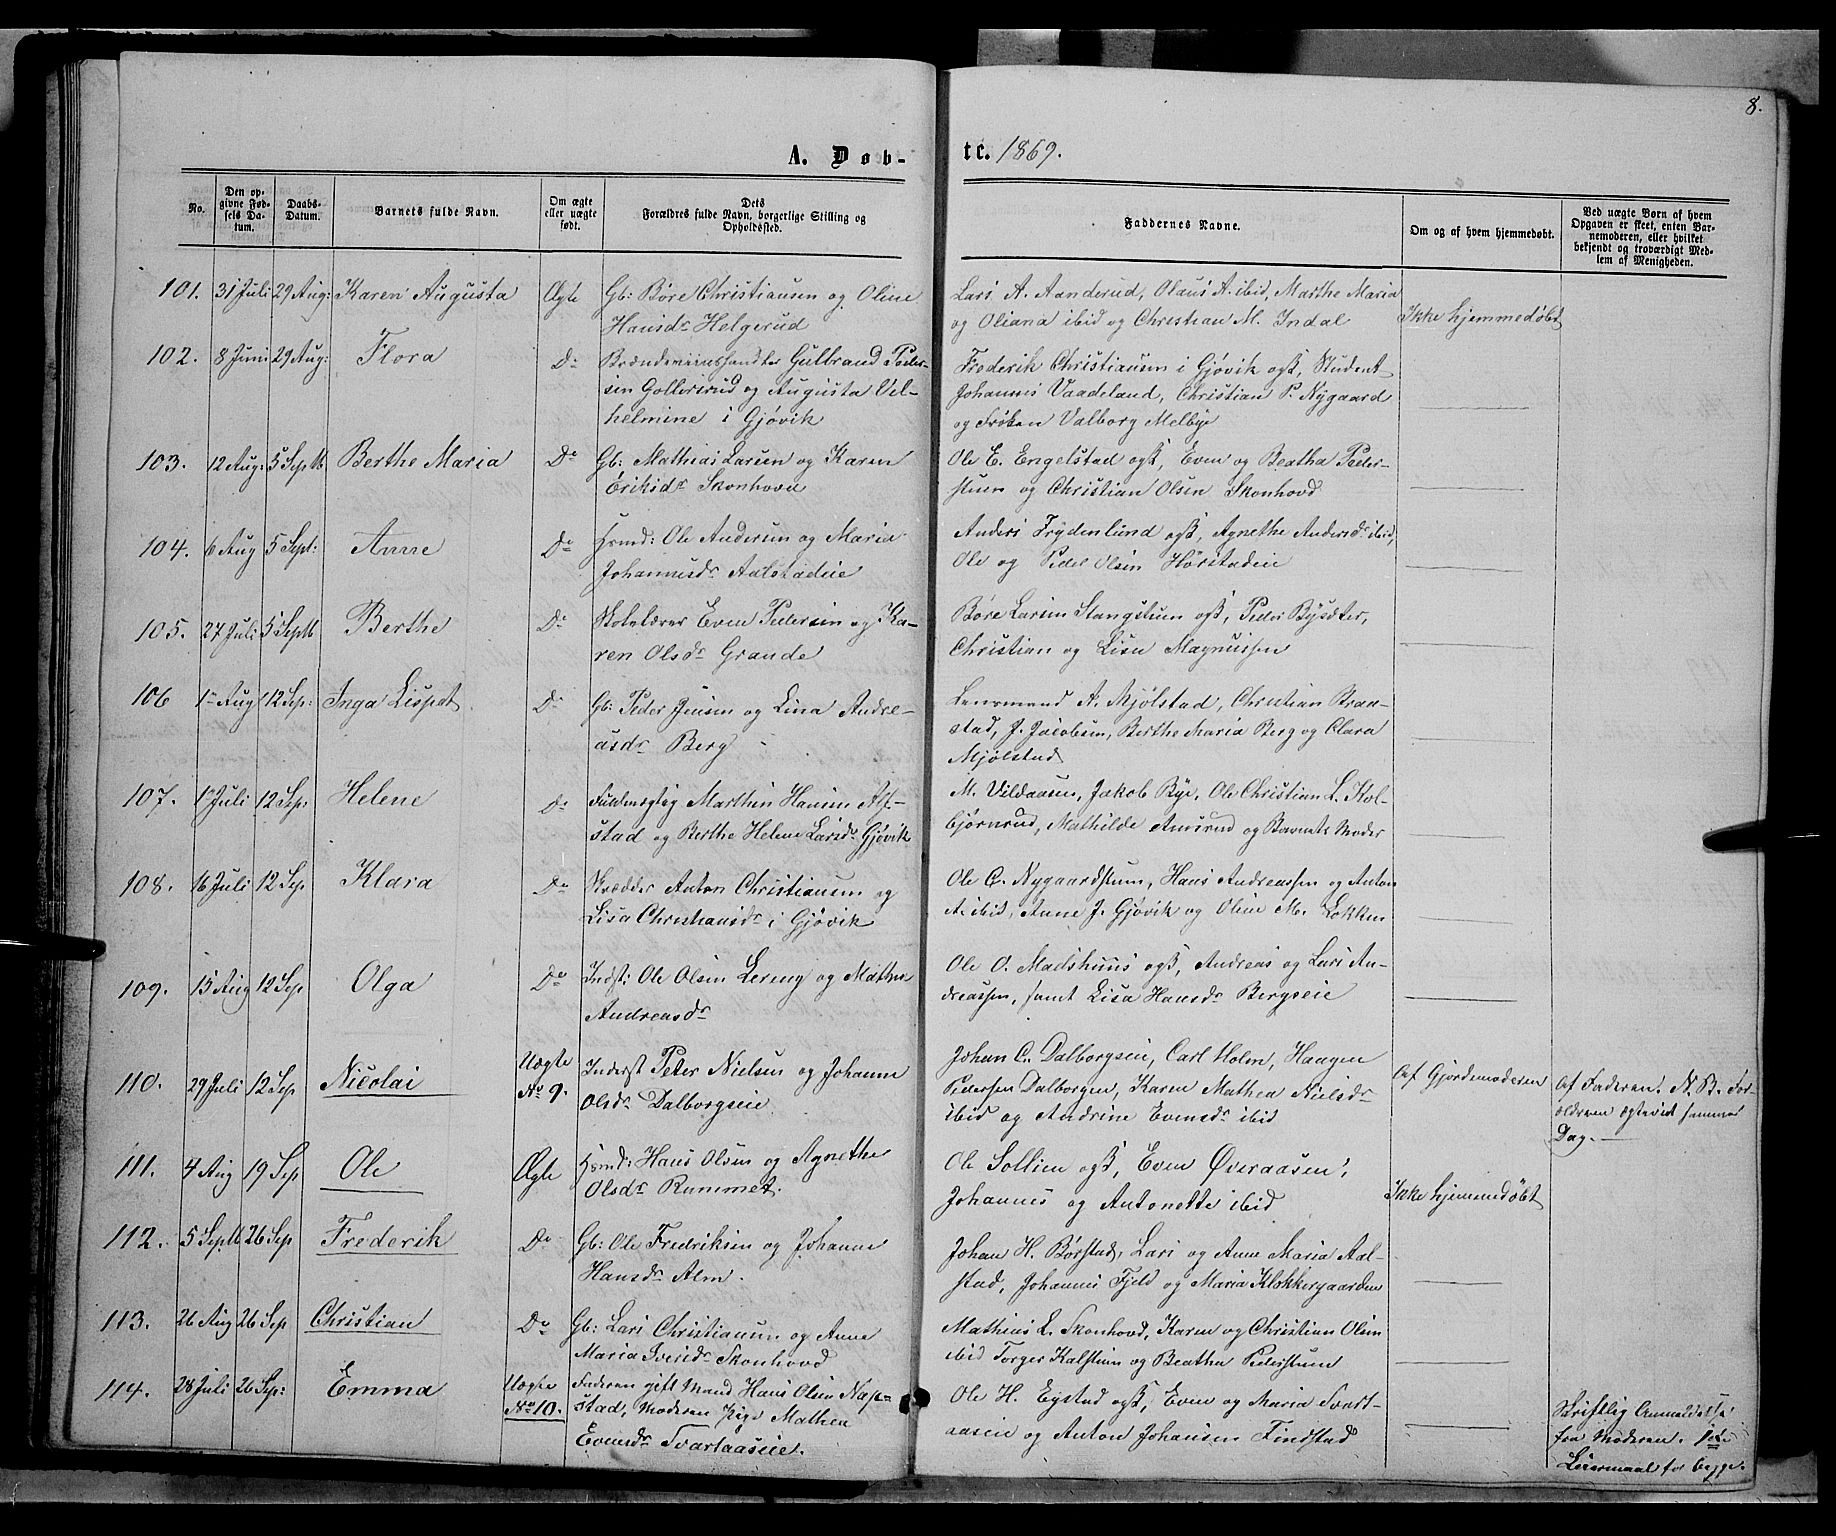 8.
A. Døb-
tc. 1869.
No.
Den op-
givne Fød-
sels Da-
tum.
Daabs-
Datum.
Barnets fulde Navn.
Om ægte
eller uægte
født.
Dets
Forældres fulde Navn, borgerlige Stilling og
Opholdssted.
Faddernes Navne.
Om og af hvem hjemmedøbt.
Ved uægte Børn af hvem
Opgaven er skeet, enten Bar-
nemoderen, eller hvilket
bekjendt og troværdigt Med-
lem af Menigheden.
101. 31 Juli 29 Aug: Karen Augusta Ægte Gb: Børe Christiansen og Oline
Hansdr Helgerud
Lars A. Aanderud, Olaus A. ibid, Marthe Maria
og Oliana ibid og Christian M. Indal
Ikke hjemmedøbt
102. 8 Juni 29 Aug: Flora Do Brændeviinshandler Gulbrand Peder-
sen Gollersrud og Augusta Vil-
helmine i Gjøvik
Frederik Christiansen i Gjøvik ogsaa, Student
Johannes Vaadeland, Christian P. Nygaard
og Frøken Valborg Melbye
103. 12 Aug: 5 Septb Berthe Maria Do Gb: Mathias Larsen og Karen
Eriksdr Skonhovd
Ole E. Engelstad ogß, Even og Beatha Peder-
stuen og Christian Olsen Skonhovd
104. 6 Aug 5 Sept: Anne Do Hsmd: Ole Andersen og Maria
Johannesdr Aalstadeie
Anders Frydenlund ogß, Agnethe Andersdr ibid,
Ole og Peder Olsen Hørstadeie
105. 27 Juli 5 Septb Berthe Do Skolelærer Even Pedersen og Ka-
ren Olsdr Grande
Børe Larsen Stangstuen ogß, Peder Bysæter,
Christian og Lisa Magnussen
106 1ste Aug 12 Sep: Inga Lispet Do Gb: Peder Jensen og Lina Andre-
asdr Berg
Lensmand A. Mjølstad, Christian Braa-
stad, J. Jacobsen, Berthe Maria Berg og Clara
Mjølstad
107. 1ste Juli 12 Sep: Helene Do Fuldmægtig Marthin Hansen Alf-
stad og Berthe Helene Larsdr Gjøvik
M. Vildaasen, Jakob Bye, Ole Christian L. Kol-
bjørnrud, Mathilde Amsrud og Barnets Moder
108. 16 Juli 12 Sep Klara Do Skrædder Anton Christiansen og
Lisa Christiansdr i Gjøvik
Ole C. Nygaardstuen, Hans Andreassen og Anton
A. ibid, Anne J. Gjøvik og Oline M. Løkken
109. 15 Aug 12 Sep Olga Do Indst: Ole Olsen Lereng og Mathea
Andreasdr
Ole O. Madshuus ogß, Andreas og Lars An-
dreassen, samt Lisa Hansdr Bergseie
110. 29 Juli 12 Sep Nicolai Uægte
No 9.
Inderst Peter Nielsen og Johanne
Olsdr Dalborgseie
Johan C. Dalborgseie, Carl Holm, Haagen
Pedersen Dalborgen, Karen Mathea Nielsdr
ibid og Andrine Evensdr ibid
Af Gjordemoderen
Af Faderen. N.B. For-
ældrene ægteviet samme
Dag.
111. 4 Aug 19 Sep Ole Ægte Hsmd: Hans Olsen og Agnethe
Olsdr Rummet.
Ole Sollien ogß, Even Øveraasen,
Johannes og Antonette ibid
Ikke hjemmedøbt
112. 5 Septb 26 Sep Frederik Do Gb: Ole Fredriksen og Johanne
Hansdr Alm.
Johan H. Børstad, Lars og Anne Maria Aal-
stad, Johannes Fjeld og Maria Klokkergaarden
113. 26 Aug 26 Sep Christian Do Gb: Lars Christiansen og Anne
Maria Iversdr Skonhovd
Mathias L. Skonhovd, Karen og Christian Olsen
ibid Torger Kalstuen og Beatha Pederstuen
114. 28 Juli 26 Sep: Emma Uægte
No 10.
Faderen gift Mand Hans Olsen Næp-
stad, Moderen Pige Mathea
Evensdr Svartaaseie.
Ole H. Eystad ogß, Even og Maria Svart-
aaseie og Anton Johansen Findstad
Skriftlig Anmeldelse
fra Moderen. 1ste
Leiermaal for begge.